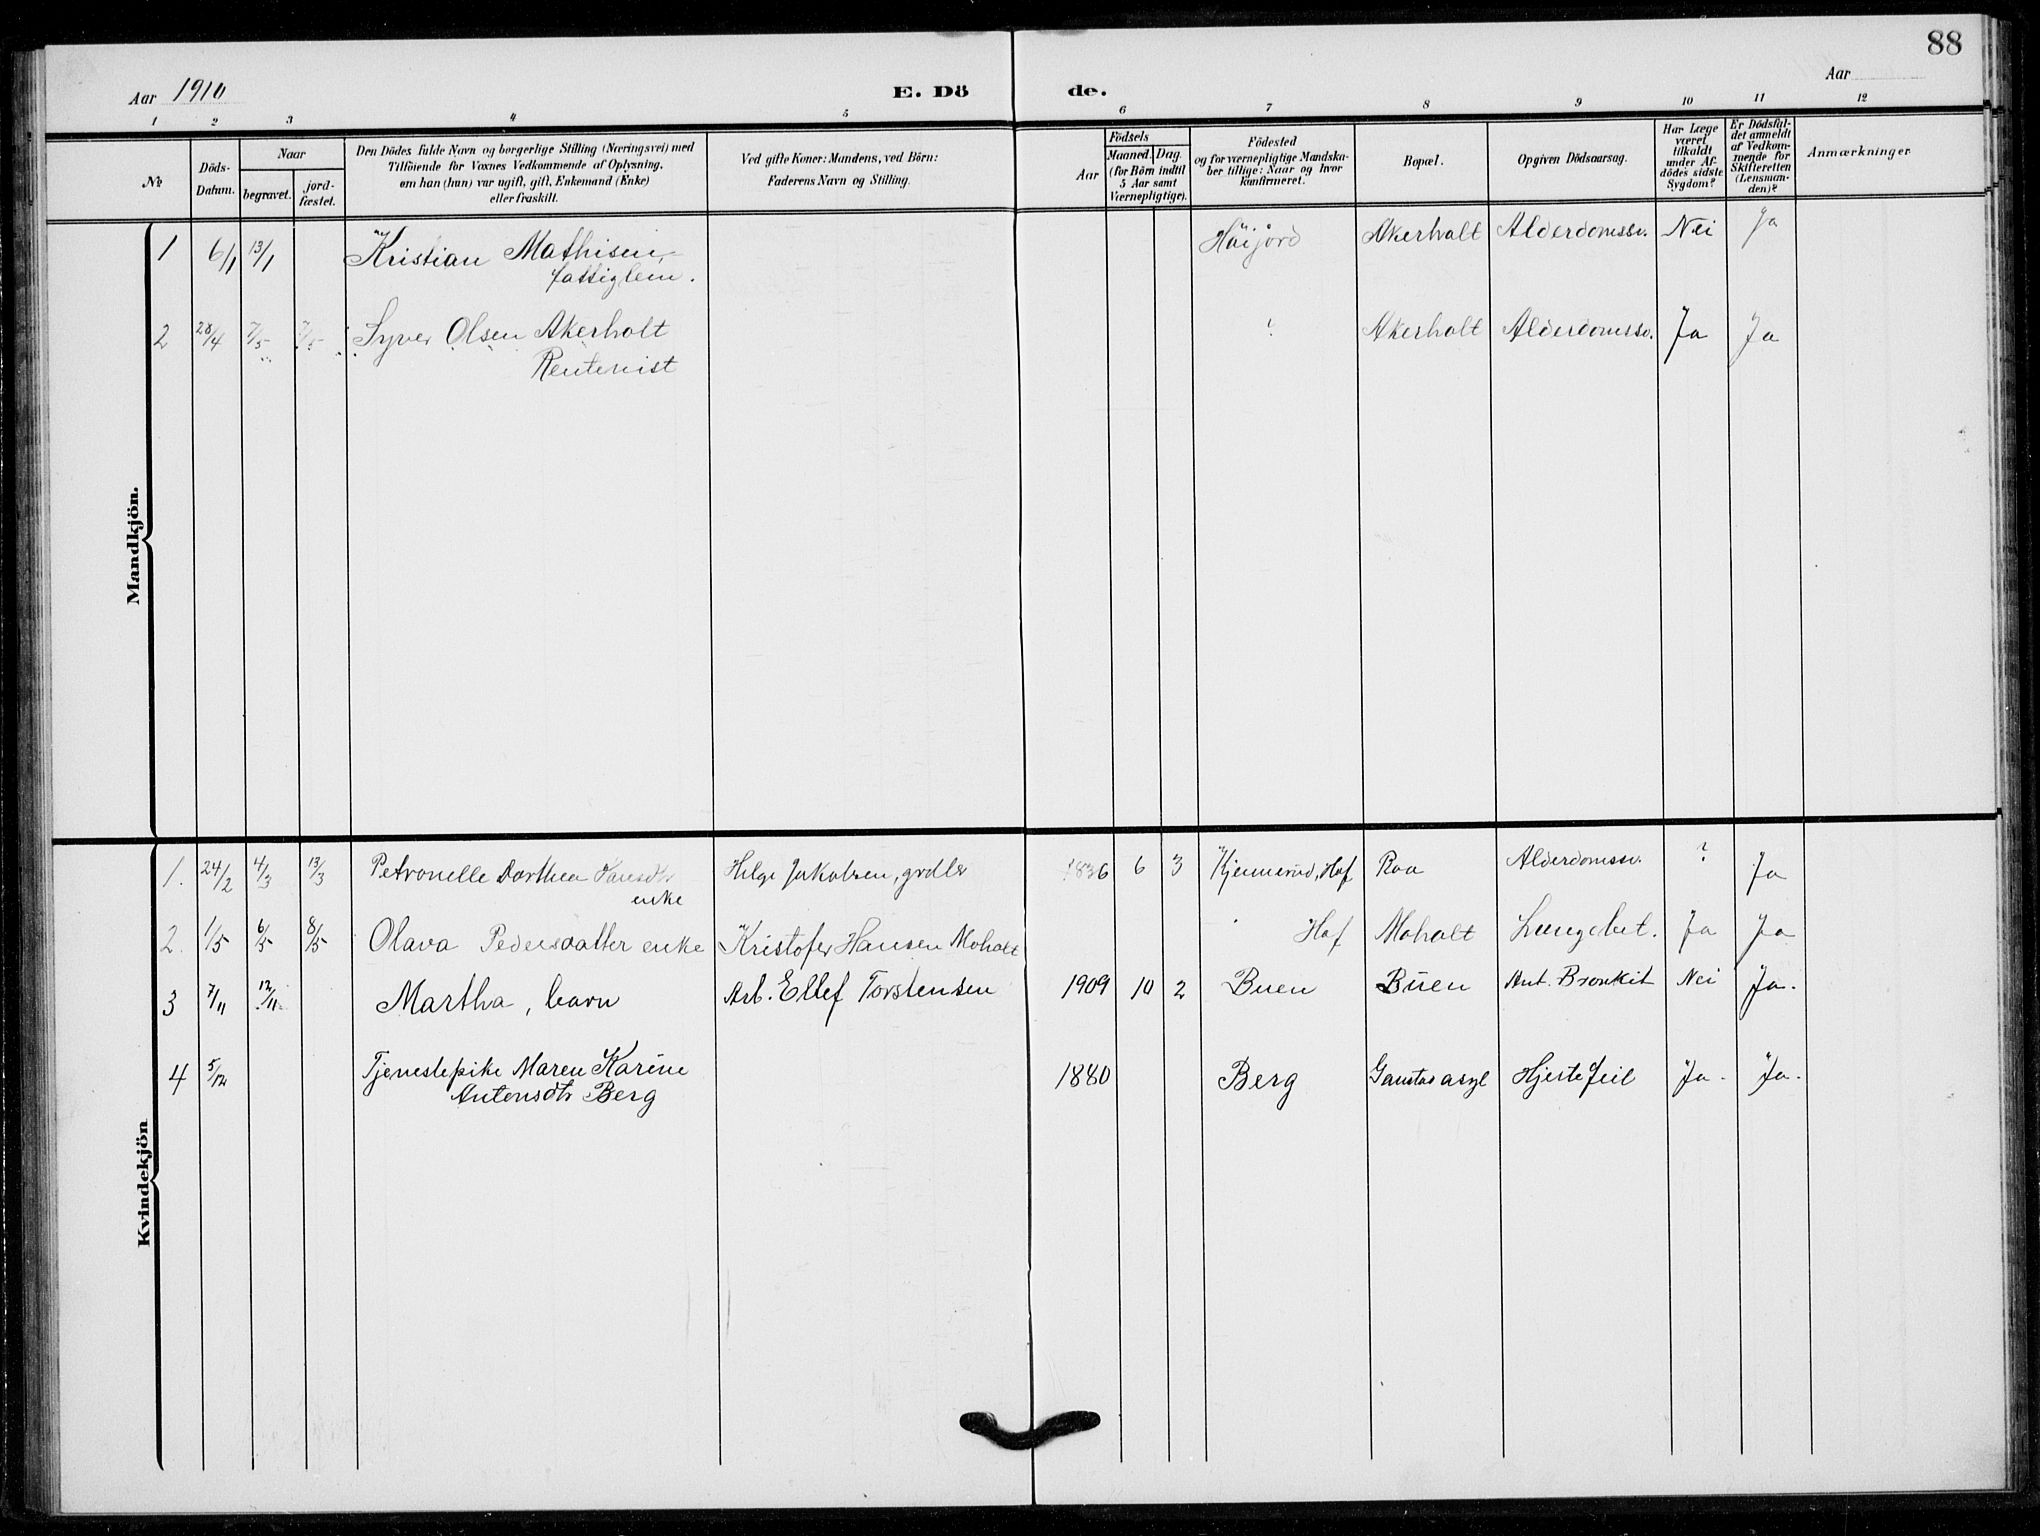 88
Aar 1910
E. Dö
de.
Aar
1 2 3 4 5 6 7 8 9 10 11 12
Nr.
Döds-
Datum.
Naar
begravet.
jord-
fæstet.
Den Dödes fulde Navn og borgerlige Stilling (Næringsvei) med
Tilföiende for Voxnes Vedkommende af Oplysning,
om han (hun) var ugift, gift, Enkemand (Enke)
eller fraskilt.
Ved gifte Koner: Mandens, ved Börn:
Faderens Navn og Stilling.
Födsels
Aar
Maaned.
Dag.
(for Börn indtil
5 Aar samt
Værnepligtige).
Födested
og for værnepligtige Mandska-
ber tillige: Naar og hvor
konfirmeret.
Bopæl.
Opgiven Dödsaarsag.
Har Læge
været
tilkaldt
under Af-
dödes sidste
Sygdom?
Er Dödsfal-
det anmeldt
af Vedkom-
mende for
Skifteretten
(Lensman-
den)?
Anmærkninger
Mandkjön.
1 6/1 13/1 Kristian Mathisen, Höijord Akerholt Alderdomssv. Nei Ja
fattiglem.
2 28/4 7/5 7/5 Syver Olsen Akerholt ? Akerholt Alderdomssv. Ja Ja
Rentenist
Kvindekjön
1. 24/2 4/3 13/3 Petronelle Dorthea Helge Jakobsen, grdbr 1836 6 3 Kjennerud, Hof Raa Alderdomssv. ? Ja
enke
2. 1/5 6/5 8/5 Olava Pedersdatter enke Kristofer Hansen Moholt Hof Moholt Lungebet. Ja Ja
3 7/11 12/11 Martha, barn Arb. Ellef Torstensen 1909 10 2 Buen Buen Ant. Bronkit Nei Ja.
4 5/12 Tjenestepike Maren Karine 1880 Berg Gaustad asyl Hjertefeil Ja. Ja.
Antonsdtr Berg